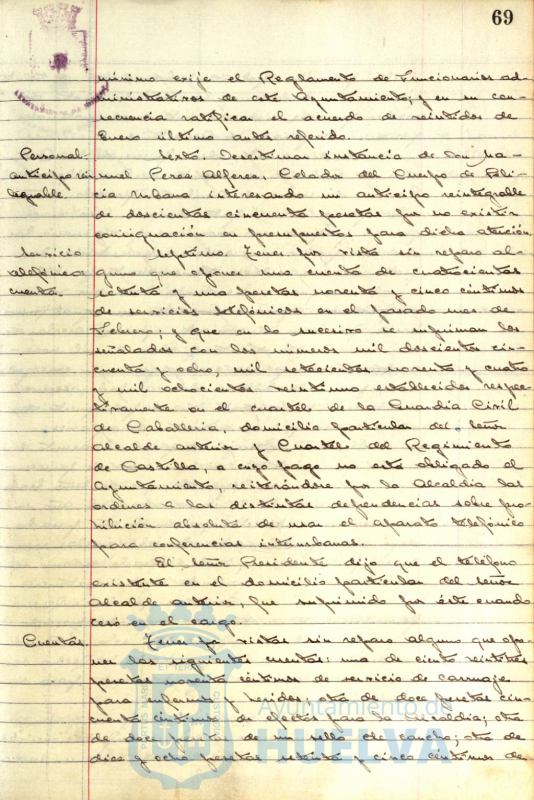 69
mínimo exije el Reglamento de Funcionarios ad-
ministrativos de este Ayuntamiento; y en su con-
secuencia ratificar el acuerdo de veintidos de
Enero último antes referido.
Personal.
anticipo rein
tegrable.
Sexto. Desestimar instancia de Don Ma-
nuel Perea Alferea, Celador del Cuerpo de Poli-
cia Urbana interesando un anticipo reintegrable
de doscientas cincuenta pesetas por no existir
consignación en presupuestos para dicha atención.
Servicio
telefónico
cuenta.
Septimo. Tener por vista sin reparo al-
guno que oponer una cuenta de cuatrocientas
setenta y una pesetas noventa y cinco céntimos
de servicios telefónicos en el pasado mes de
Febrero; y que en lo sucesivo se supriman los
señalados con los números mil doscientos cin-
cuenta y ocho, mil setecientos noventa y cuatro
y mil ochocientos veintiuno establecidos respec-
tivamente en el cuartel de la Guardia Civil
de Caballeria, domicilio particular del señor
Alcalde anterior y Cuartel del Regimiento
de Castilla, a cuyo pago no está obligado el
Ayuntamiento, reiterándose por la Alcaldia las
ordenes a las distintas dependencias sobre pro-
hibición absoluta de usar el aparato telefónico
para conferencias interurbanas.
El señor Presidente dijo que el teléfono
existente en el domicilio particular del señor
Alcalde anterior, fue suprimido por éste cuando
cesó en el cargo.
Cuentas.
Tener por vistas sin reparo alguno que opo-
ner las siguientes cuentas: una de ciento veintitres
pesetas noventa céntimos de servicio de carruaje
para enfermos y heridos; otra de doce pesetas cin-
cuenta céntimos de efectos para la Alcaldia; otra
de doce pesetas de un sello de caucho; otra de
diez y ocho pesetas setenta y cinco céntimos de
Ayuntamiento de
HUELVA